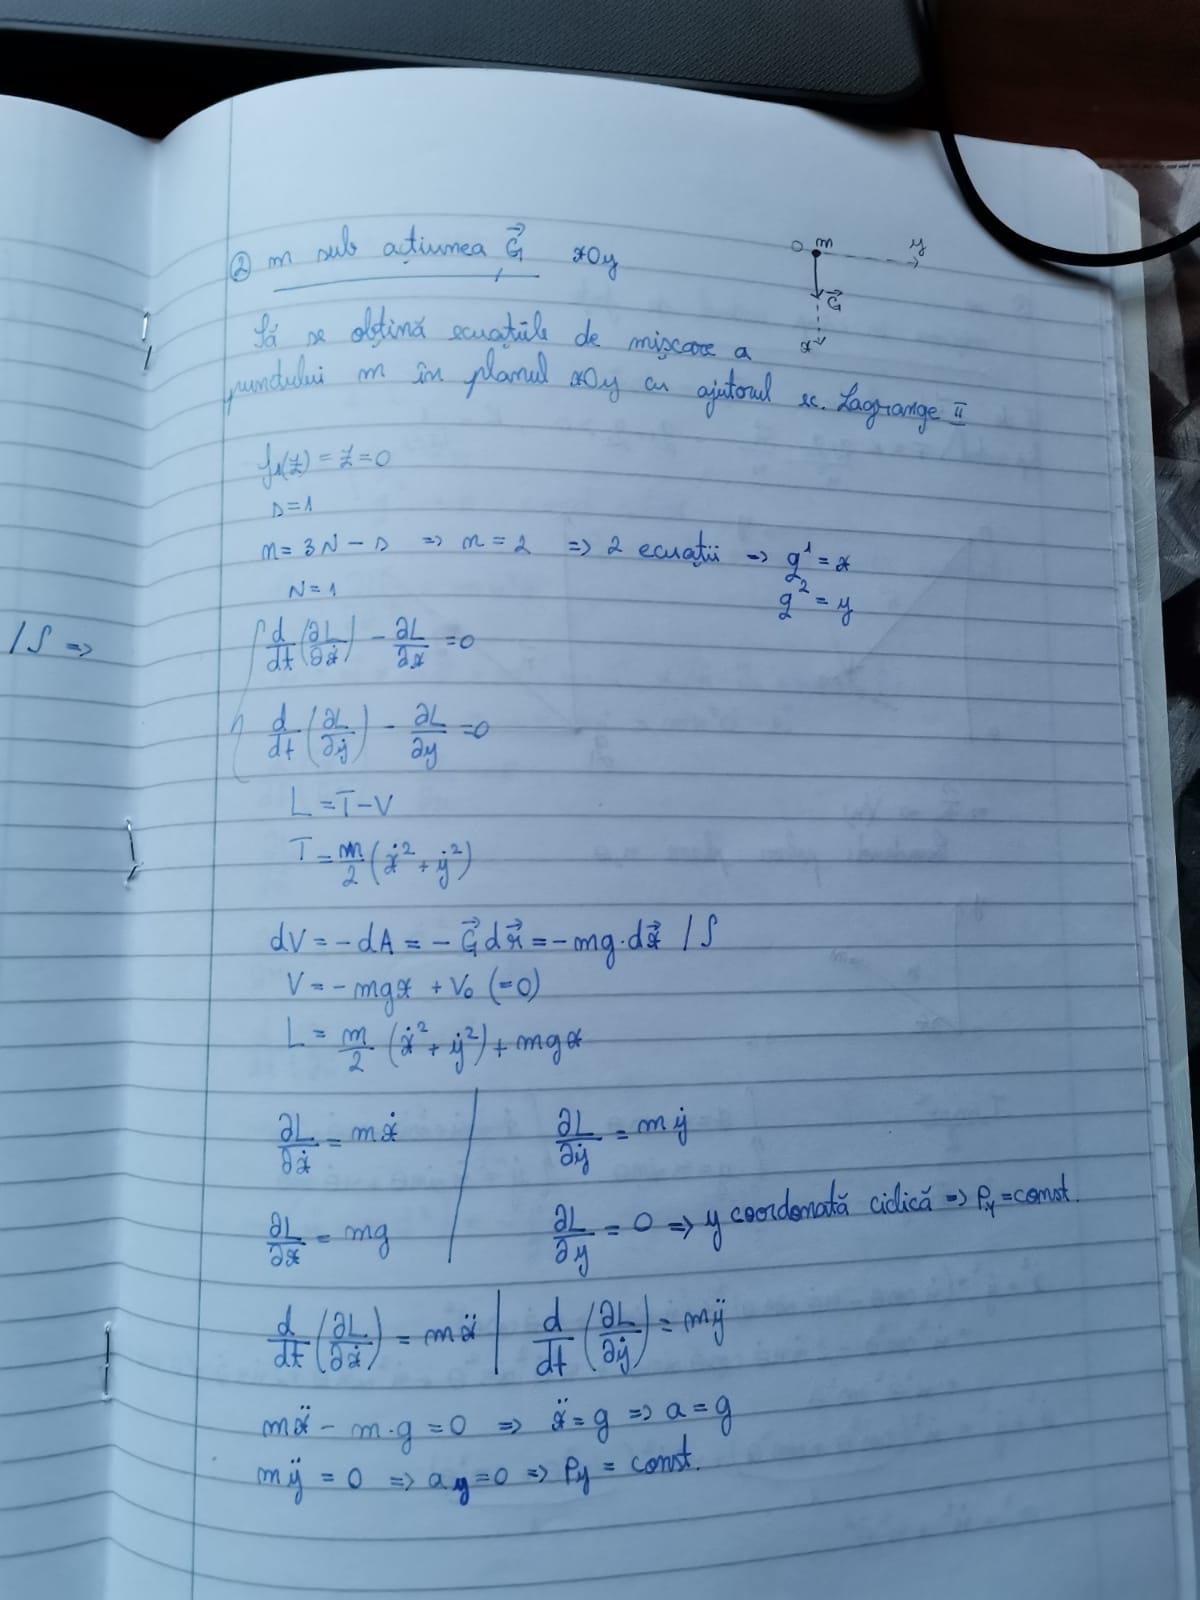 ② m sub acțiunea G⃗ xOy
O m y
G⃗
x
Să se obțină ecuațiile de mișcare a
punctului m în planul xOy cu ajutorul ec. Lagrange II
f₁(z) = z = 0
s = 1
n = 3N - s => n = 2 => 2 ecuații => q¹ = x
N = 1 q² = y
/∫ =>
d/dt (∂L/∂ẋ) - ∂L/∂x = 0
d/dt (∂L/∂ẏ) - ∂L/∂y = 0
L = T - V
T = m/2 (ẋ² + ẏ²)
dV = - dA = - G⃗ dr⃗ = - mg · dx⃗ /∫
V = - mgx + V₀ (=0)
L = m/2 (ẋ² + ẏ²) + mgx
∂L/∂ẋ = mẋ | ∂L/∂ẏ = mẏ
∂L/∂x = mg | ∂L/∂y = 0 => y coordonată ciclică => Py = const.
d/dt (∂L/∂ẋ) = mẍ | d/dt (∂L/∂ẏ) = mÿ
mẍ - m·g = 0 => ẍ = g => a = g
mÿ = 0 => ay = 0 => Py = const.